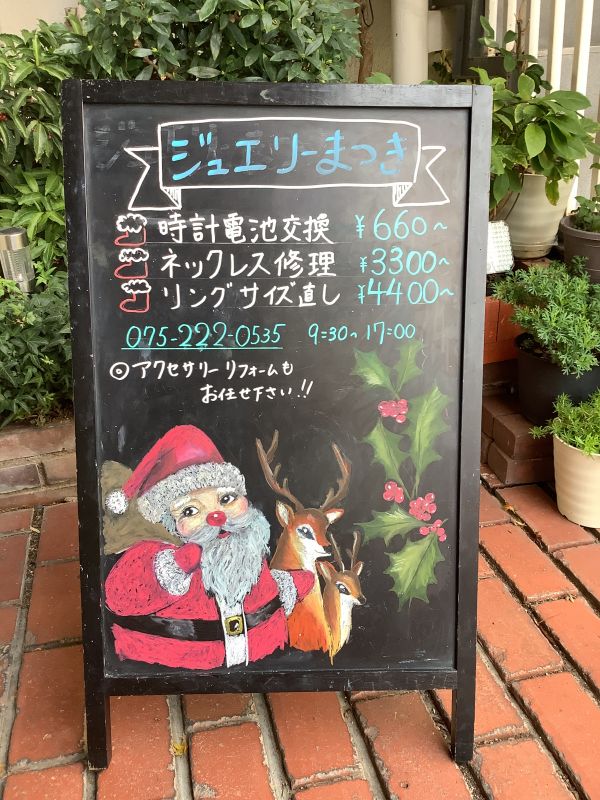 ジュエリーまつき
時計電池交換 ¥660~
ネックレス修理 ¥3300~
リングサイズ直し ¥4400~
075-222-0535 9:30~17:00
◎アクセサリーリフォームも
お任せ下さい!!